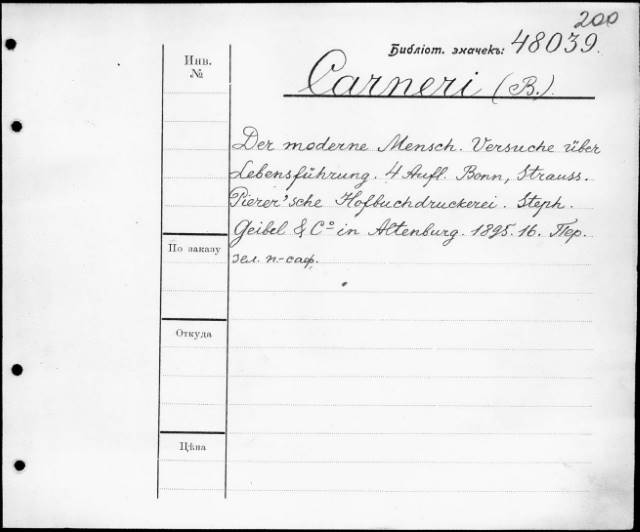 200
Библіот. значекъ: 48039.
Инв.
№
Carneri (B.).
Der moderne Mensch. Versuche über
Lebensführung. 4 Aufl. Bonn, Strauss.
Pierer'sche Hofbuchdruckerei. Steph.
Geibel & Cº in Altenburg. 1895. 16. Пер.
зел. п.-саф.
По заказу
Откуда
Цѣна